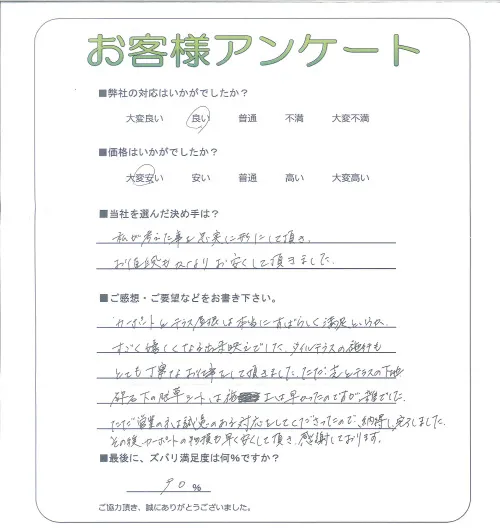 お客様アンケート
■弊社の対応はいかがでしたか?
大変良い 良い 普通 不満 大変不満
■価格はいかがでしたか?
大変安い 安い 普通 高い 大変高い
■当社を選んだ決め手は?
私が考えた事を忠実に形にして頂き、
お値段もかなりお安くして頂きました。
■ご感想・ご要望などをお書き下さい。
カーポートとテラス屋根は本当にすばらしく満足というか、
すごく嬉しくなる出来映えでした。タイルテラスの施行も
とても丁寧なお仕事をして頂きました。ただ、芝とテラスの下地
砕石下の防草シートは は早かったのですが雑でした。
ただ営業の は誠意のある対応をしてくださったので、納得し完了しました。
その後、カーポートの も早く安くして頂き、感謝しております。
■最後に、ズバリ満足度は何%ですか?
90 %
ご協力頂き、誠にありがとうございました。